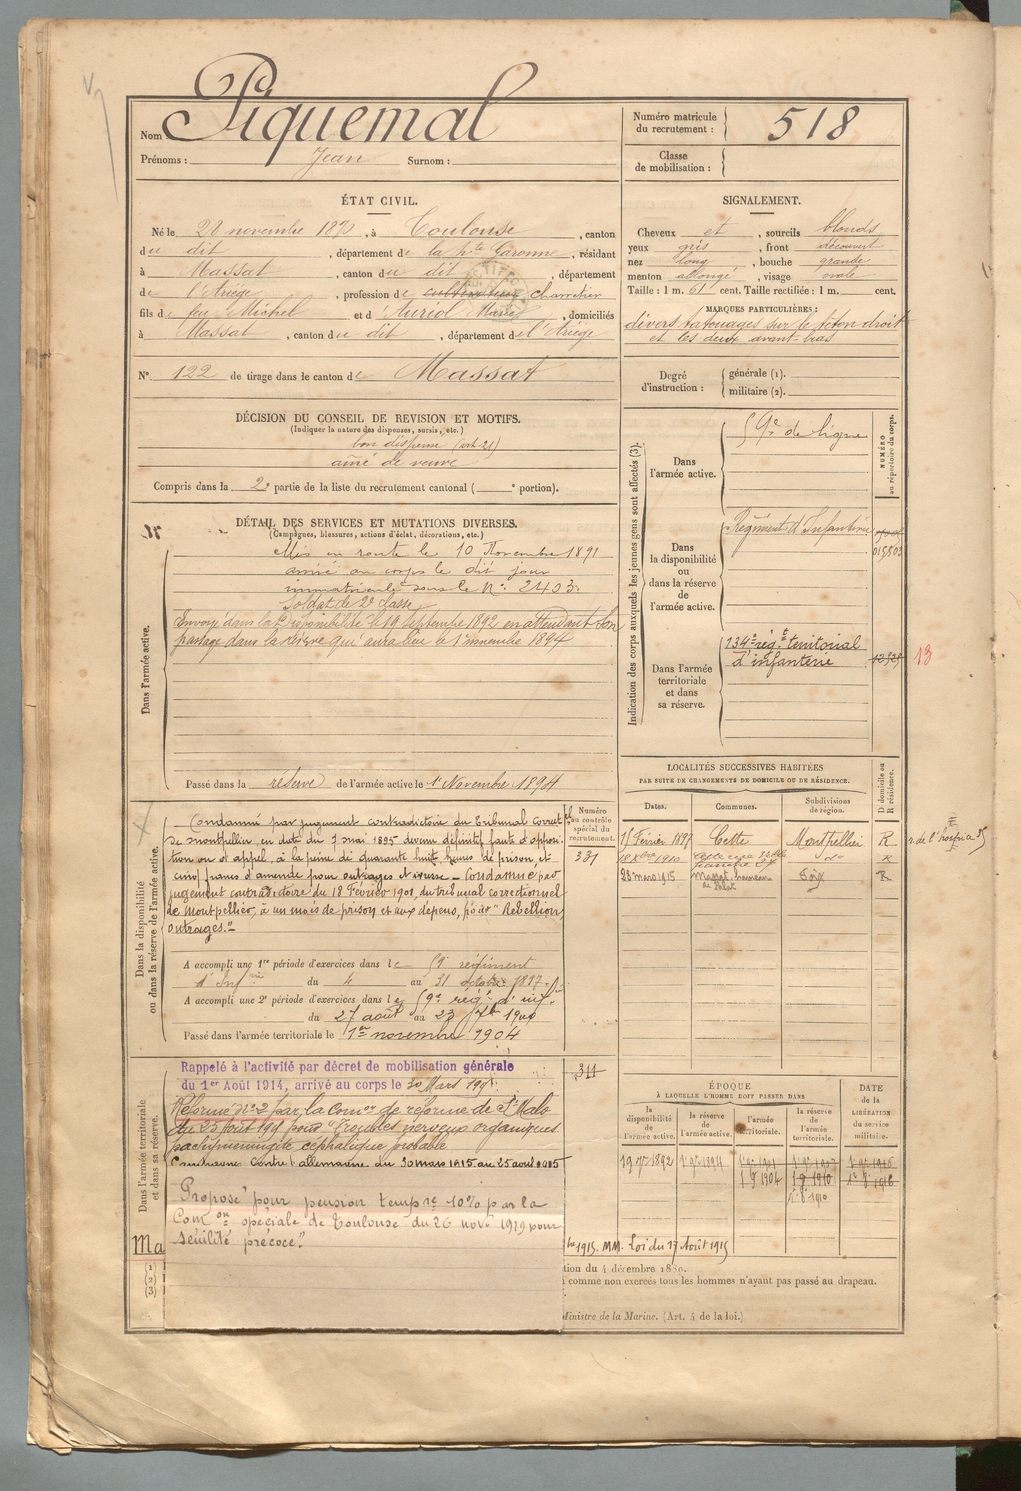 Nom : Piquemal
Prénoms : Jean Surnom :
Numéro matricule du recrutement : 518
Classe de mobilisation :
ÉTAT CIVIL.
Né le 28 novembre 1870, à Toulouse, canton
du dit, département de la Hte Garonne, résidant
à Massat, canton du dit, département
de l'Ariège, profession de cultivateur charretier
fils de feu Michel et d'Auriol Marie, domiciliés
à Massat, canton du dit, département de l'Ariège
N° 122 de tirage dans le canton de Massat
SIGNALEMENT.
Cheveux et, sourcils blonds
yeux gris, front découvert
nez long, bouche grande
menton allongé, visage ovale
Taille : 1 m. 61 cent. Taille rectifiée : 1 m. cent.
MARQUES PARTICULIÈRES :
divers tatouages sur le téton droit
et les deux avant-bras
Degré d'instruction : générale (1). militaire (2).
DÉCISION DU CONSEIL DE REVISION ET MOTIFS.
(Indiquer la nature des dispenses, sursis, etc.)
bon dispensé (art. 21)
aîné de veuve
Compris dans la 2e partie de la liste du recrutement cantonal ( e portion).
DÉTAIL DES SERVICES ET MUTATIONS DIVERSES.
(Campagnes, blessures, actions d'éclat, décorations, etc.)
Dans l'armée active.
Mis en route le 10 Novembre 1891
arrivé au corps le dit jour
immatriculé sous le N° 2403.
Soldat de 2e classe
Envoyé dans la disponibilité le 19 septembre 1892 en attendant son
passage dans la réserve qui aura lieu le 1 novembre 1894
Passé dans la réserve de l'armée active le 1er Novembre 1894
Indication des corps auxquels les jeunes gens sont affectés (3).
NUMÉRO au répertoire du corps.
Dans l'armée active.
59e de ligne
Dans la disponibilité ou dans la réserve de l'armée active.
Régiment d'Infanterie
015503
Dans l'armée territoriale et dans sa réserve.
134e rég.t territorial
d'infanterie
13
LOCALITÉS SUCCESSIVES HABITÉES
PAR SUITE DE CHANGEMENTS DE DOMICILE OU DE RÉSIDENCE.
Dates. Communes. Subdivisions de région. D domicile ou R résidence.
15 Février 1897 Cette Montpellier R r de l'hospice 25
1910 do R
28 mars 1915 Massat, hameau Foix R
Dans la disponibilité ou dans la réserve de l'armée active.
Numéro au contrôle spécial du recrutement.
331
Condamné par jugement contradictoire du Tribunal Correctel
de Montpellier, en date du 7 mai 1895 devenu définitif faute d'opposi
tion ou d'appel, à la peine de quarante huit heures de prison et
cinq francs d'amende pour outrages et ivresse - Condamné par
jugement contradictoire du 18 Février 1901, du tribunal correctionnel
de Montpellier, à un mois de prison et aux dépens, pour "Rebellion,
outrages."
A accompli une 1re période d'exercices dans le 59e régiment
d'Infrie du 4 au 31 octobre 1897.
A accompli une 2e période d'exercices dans le 59e régt d'inf.
du 27 août au 23 7bre 1900
Passé dans l'armée territoriale le 1er novembre 1904
Dans l'armée territoriale et dans sa réserve.
344
Rappelé à l'activité par décret de mobilisation générale
du 1er Août 1914, arrivé au corps le 30 Mars 1915.
Réformé N° 2 par la Comon de réforme de St Malo
du 25 août 1915 pour "Troubles nerveux organiques
pachyméningite céphalique probable
Campagne contre l'allemagne du 30 mars 1915 au 25 août 1915
Proposé pour pension tempre 10% par la
Comon spéciale de Toulouse du 26 novre 1929 pour
"sénilité précoce"
Ma
(1)
(2)
(3)
ÉPOQUE
À LAQUELLE L'HOMME DOIT PASSER DANS
la disponibilité de l'armée active. la réserve de l'armée active. l'armée territoriale. la réserve de l'armée territoriale.
DATE de la LIBÉRATION du service militaire.
19 7bre 1892 1 9bre 1894 1 9 1904 1 9 1910
1915. MM. Loi du 17 Août 1915
tion du 4 décembre 1889.
comme non exercés tous les hommes n'ayant pas passé au drapeau.
Ministre de la Marine. (Art. 4 de la loi.)